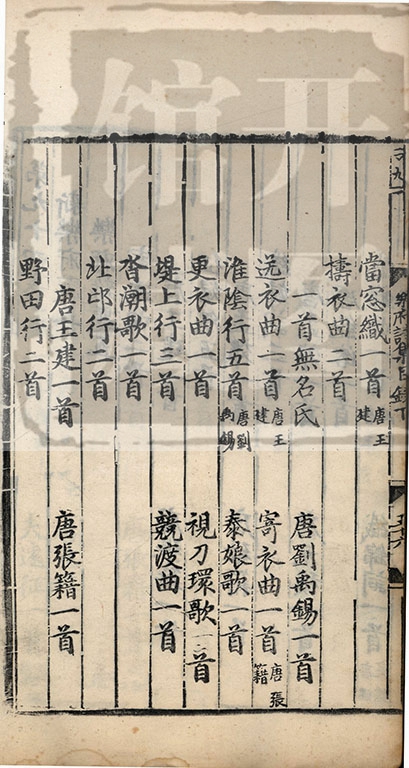 當窓織一首 唐王建
擣衣曲二首
一首無名氏 唐劉禹錫一首
送衣曲一首 唐王建 寄衣曲一首 唐張籍
淮陰行五首 唐劉禹錫 泰娘歌一首
更衣曲一首 視刀環歌一首
堤上行三首 競渡曲一首
沓潮歌一首
北邙行二首
唐王建一首 唐張籍一首
野田行二首
樂府詩集目錄下